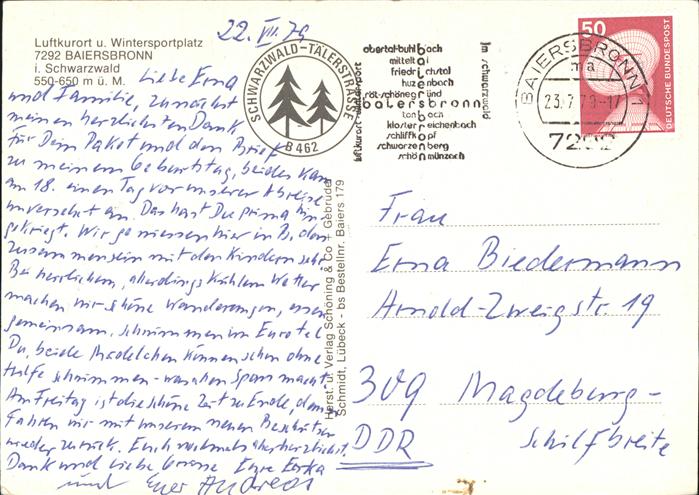 Luftkurort u. Wintersportplatz
7292 BAIERSBRONN
i. Schwarzwald
550-650 m ü. M.
22. VII. 79
Liebe Erna
und Familie, zunächst
meinen herzlichsten Dank
für Dein Paket und den Brief
zu meinem Geburtstag, beides kam
am 18. einen Tag vor unserer Abreise
unversehrt an. Das hast Du prima hin-
gekriegt. Wir geniessen hier in B. das
zusammensein mit den Kindern sehr.
Bei herrlichem, allerdings kühlem Wetter
machen wir schöne Wanderungen, essen
gemeinsam, schwimmen im Eurotel
Du, beide Mädelchen können schon ohne
Hilfe schwimmen - was Spass macht.
Am Freitag ist die schöne Zeit zu Ende, dann
fahren wir mit unserem neuen
wieder zurück. Euch nochmals allerherzlichst
Dank und liebe Grüsse Eure Erika
und Euer Andreas
SCHWARZWALD-TÄLERSTRASSE
B 462
luftkurort wintersport
obertal-buhlbach
mitteltal
friedrichstal
huzenbach
röt-schönegründ
baiersbronn
tonbach
klosterreichenbach
schliffkopf
schwarzenberg
schönmünzach
im schwarzwald
BAIERSBRONN 1
ma
23.7.79-17
7292
50
DEUTSCHE BUNDESPOST
Herst. u. Verlag Schöning & Co + Gebrüder
Schmidt, Lübeck - bs Bestellnr. Baiers 179
Frau
Erna Biedermann
Arnold-Zweigstr. 19
309 Magdeburg-
Schilfbreite
DDR